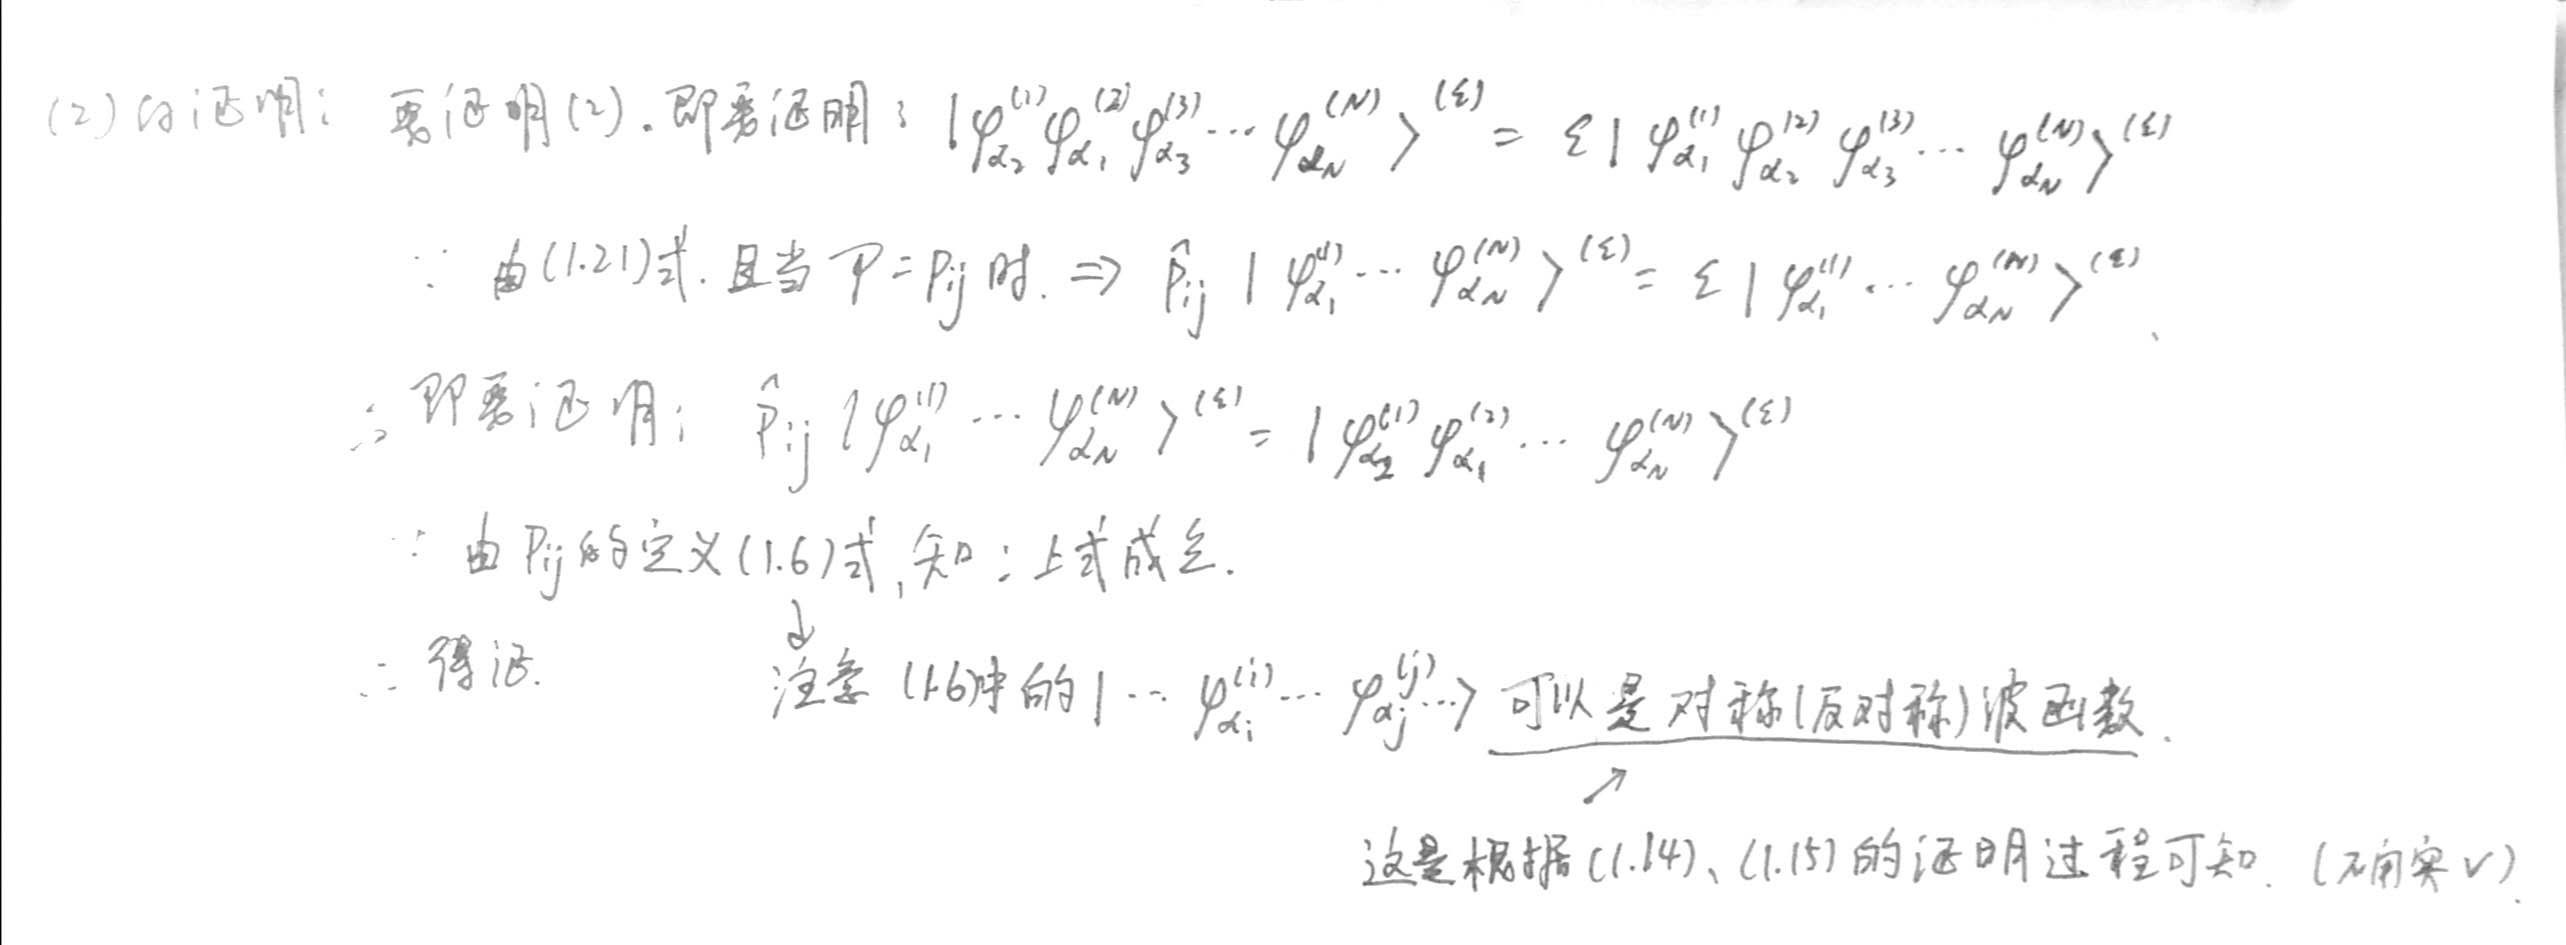 (2)的证明: 要证明(2).即要证明: |φ_{α₂}^{(1)} φ_{α₁}^{(2)} φ_{α₃}^{(3)} ··· φ_{α_N}^{(N)}⟩^{(ε)} = ε |φ_{α₁}^{(1)} φ_{α₂}^{(2)} φ_{α₃}^{(3)} ··· φ_{α_N}^{(N)}⟩^{(ε)}
∵ 由(1.21)式.且当 P = P_{ij} 时. ⇒ P̂_{ij} |φ_{α₁}^{(1)} ··· φ_{α_N}^{(N)}⟩^{(ε)} = ε |φ_{α₁}^{(1)} ··· φ_{α_N}^{(N)}⟩^{(ε)}
∴ 即要证明: P̂_{ij} |φ_{α₁}^{(1)} ··· φ_{α_N}^{(N)}⟩^{(ε)} = |φ_{α₂}^{(1)} φ_{α₁}^{(2)} ··· φ_{α_N}^{(N)}⟩^{(ε)}
∵ 由 P_{ij} 的定义(1.6)式,知:上式成立.
↓
∴ 得证. 注意(1.6)中的|··· φ_{α_i}^{(i)} ··· φ_{α_j}^{(j)} ···⟩ 可以是对称(反对称)波函数.
↗
这是根据(1.14)、(1.15)的证明过程可知. (确实√).